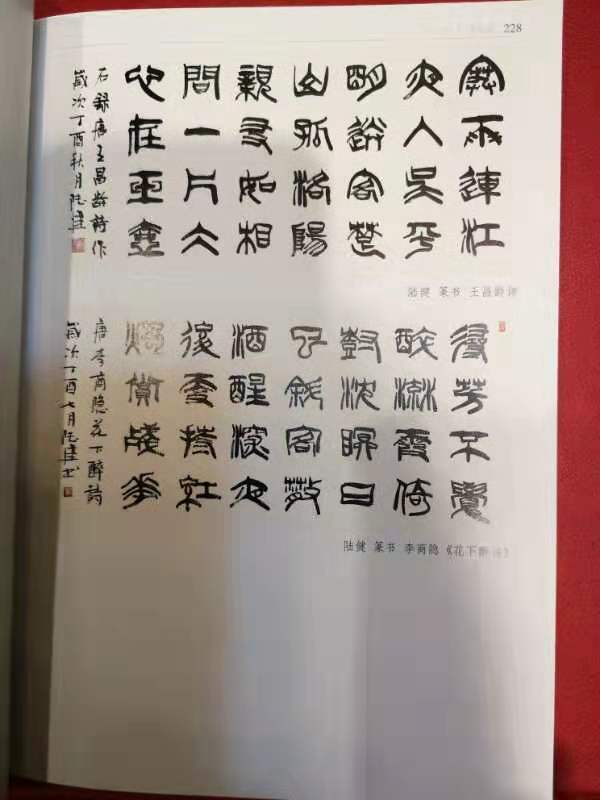 228
寒雨連江
夜入吴平
明送客楚
山孤洛陽
親友如相
問一片仌
心在玉壺
右録唐王昌齡詩作
歲次丁酉秋月陸健
陆健 篆书 王昌龄诗
尋芳不覺
醉流霞倚
樹沈眠日
已斜客散
酒醒深夜
後更持紅
燭賞殘花
唐李商隐花下醉詩
歲次丁酉七月陸健书
陆健 篆书 李商隐《花下醉诗》